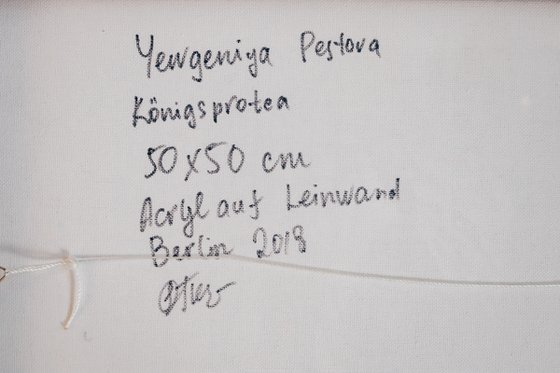 Yewgeniya Pestova
Königsprotea
50x50 cm
Acryl auf Leinwand
Berlin 2018